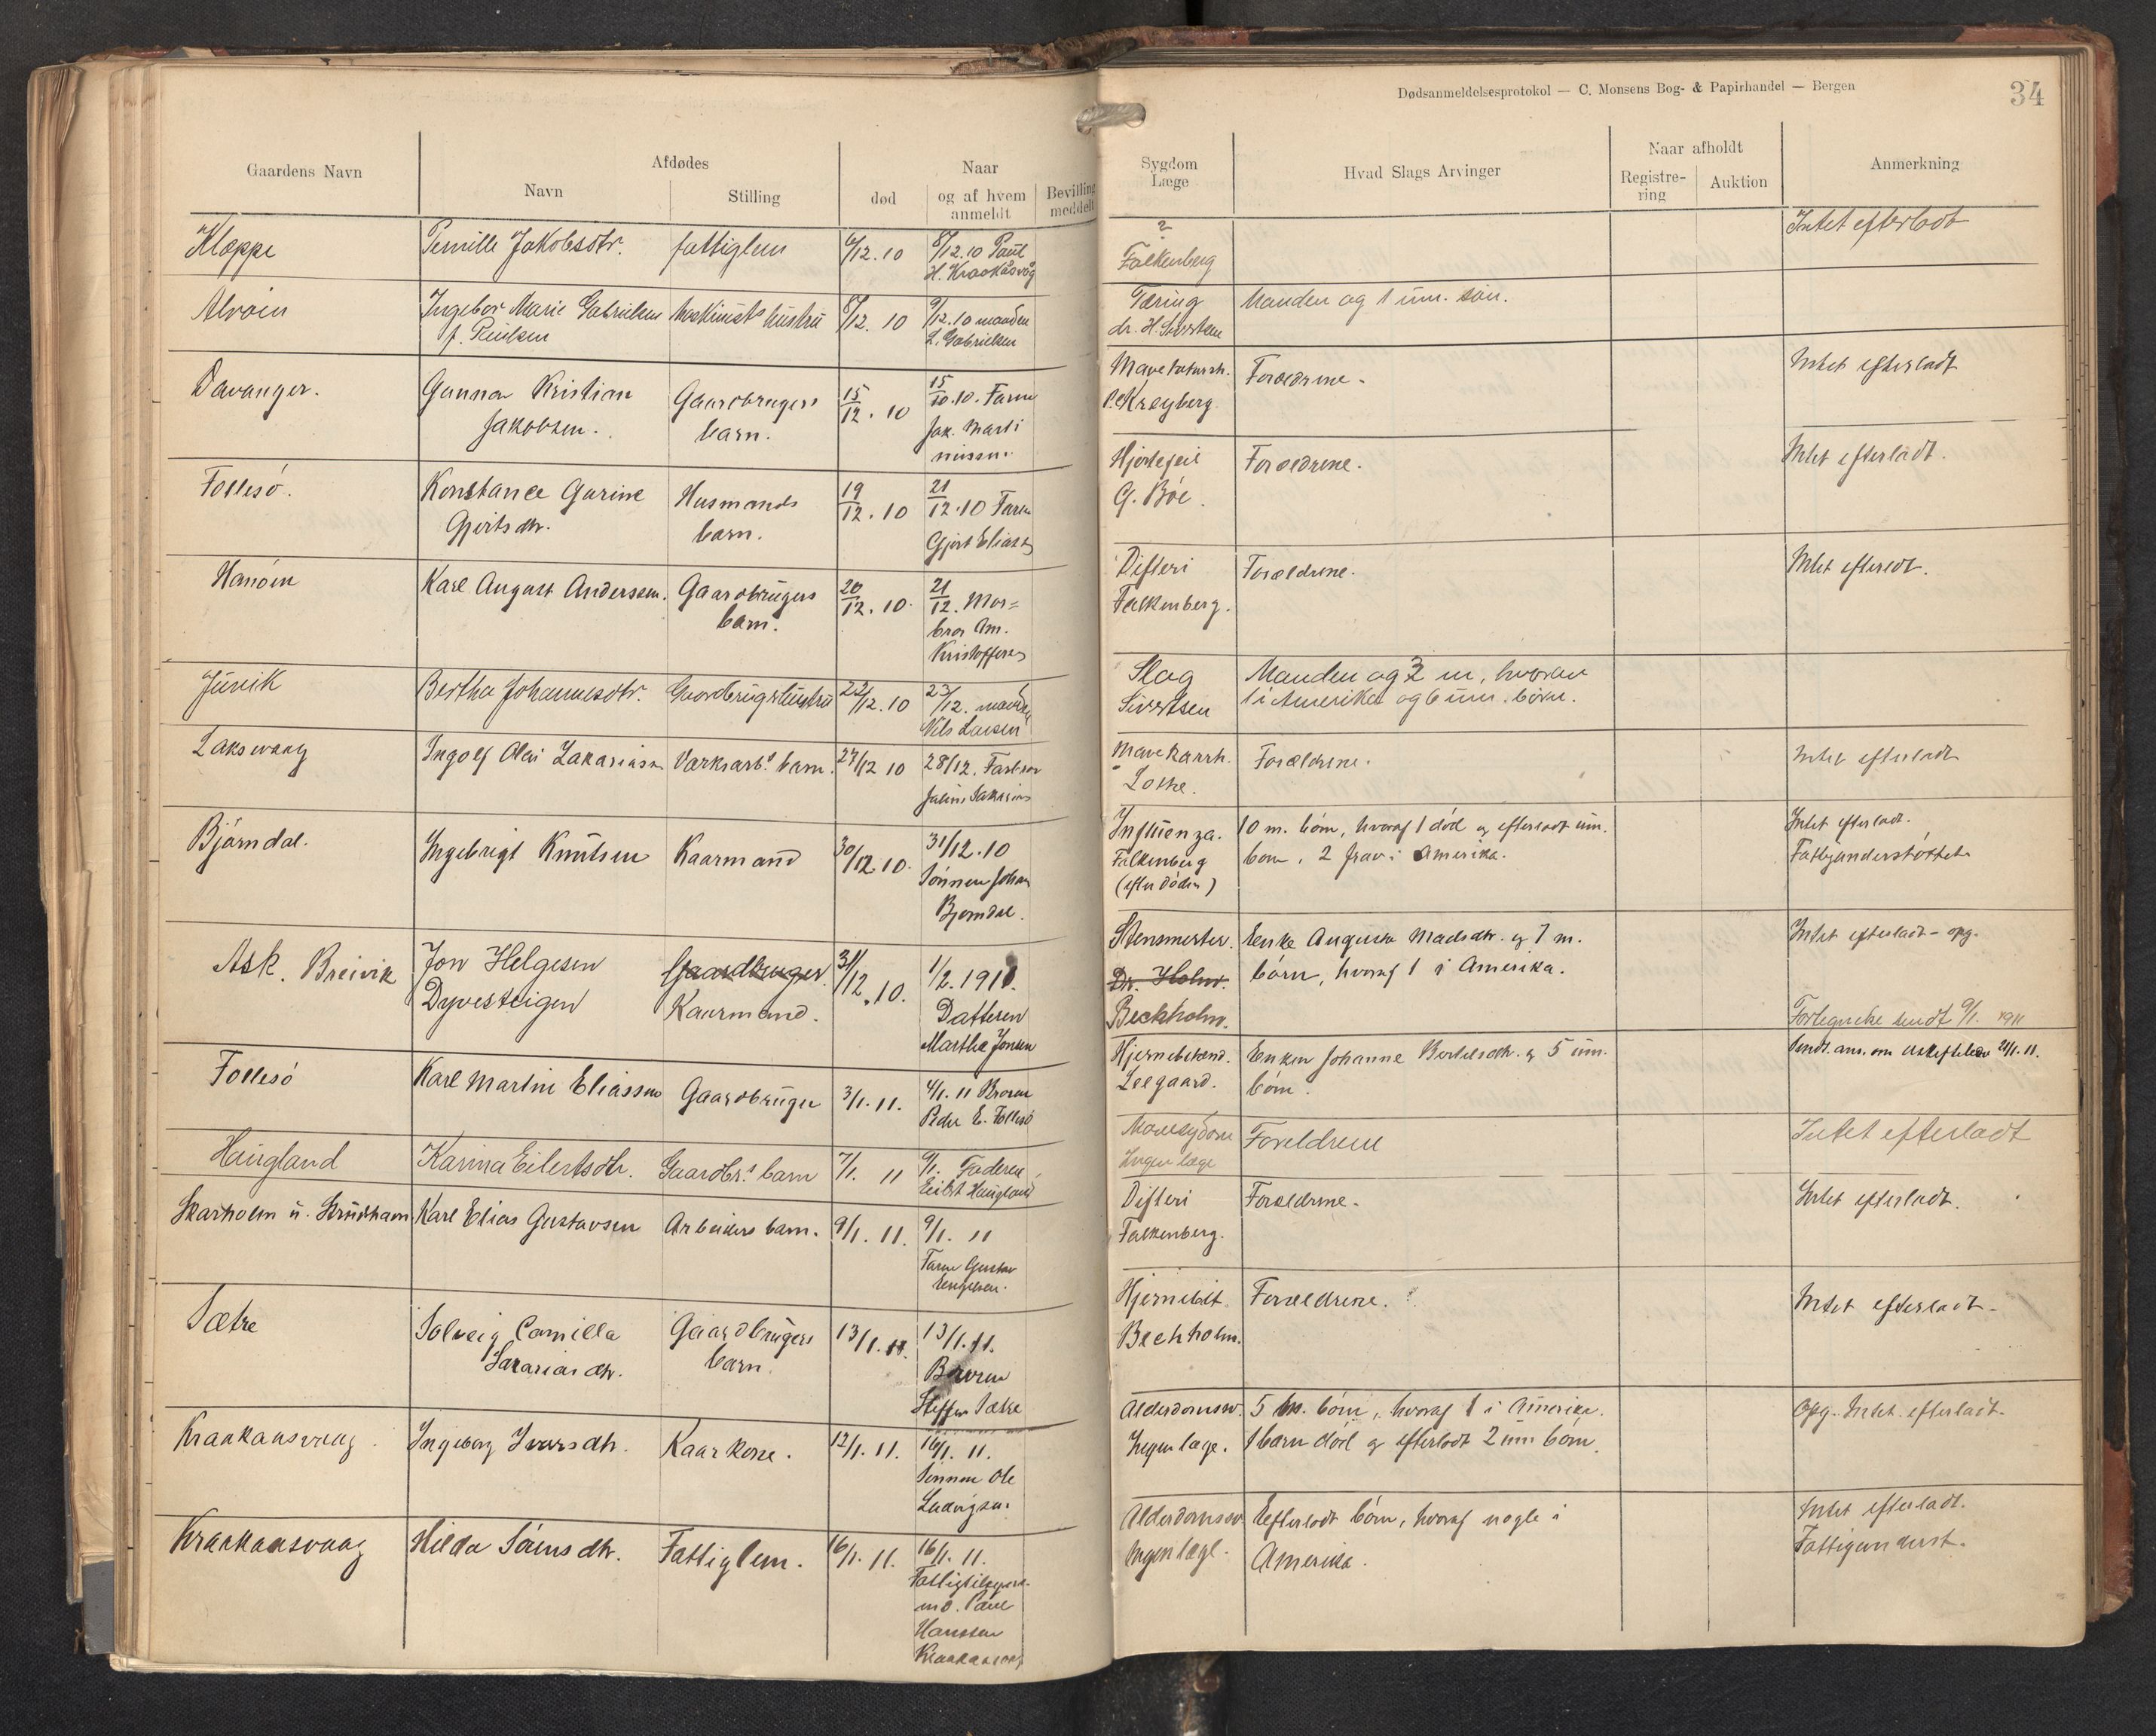 Dødsanmeldelsesprotokol — C. Monsens Bog- & Papirhandel — Bergen
34
Gaardens Navn
Afdødes
Navn
Stilling
død
Naar
og af hvem
anmeldt
Bevilling
meddelt
Sygdom
Læge
Hvad Slags Arvinger
Naar afholdt
Registre-
ring
Auktion
Anmerkning
Kleppe
Pernille Jakobsdtr.
fattiglem
6/12.10
8/12.10 Paul
H. Kraakåsvåg
?
Falkenberg
Intet efterladt
Alvøen
Ingebor Marie Gabrielsen
f. Paulsen
Maskinists hustru
8/12. 10
9/12.10 manden
L. Gabrielsen
Tæring
dr. H. Sivertsen
Manden og 1 um. søn.
Davanger.
Gunnar Kristian
Jakobsen.
Gaardbrugers
barn.
15/12. 10
15/10.10. Faren
Jak. Marti
nussen.
Kreyberg
Forældrene.
Intet efterladt
Follesö.
Konstance Gurine
Gjertsdtr.
Husmands
barn.
19/12. 10
21/12.10 Faren
Gjert Eliass
Hjertefeil
G. Böe.
Forældrene.
Intet efterladt.
Hanöen
Karl August Anderssen.
Gaardbrugers
barn.
20/12. 10.
21/12. Mor=
bror Am.
Kristoffers
Difteri
Falkenberg.
Forældrene.
Intet efterladt.
Juvik
Bertha Johannesdtr.
Gaardbrugerhustru
22/12.10
23/12. manden
Nils Larsen
Slag
Sivertsen
Manden og 3 m, hvorav
1 i Amerika og 6 um. börn.
Laksevaag
Ingolf Olai Zakariasn
Værksarb.s barn.
27/12 10
28/12. Farbror
Mavekatarrh.
Lothe.
Forældrene.
Intet efterladt
Björndal.
Ingebrigt Knutsen
Kaarmand
30/12.10.
31/12.10
Sönnen Johan
Bjorndal.
Influenza.
Falkenberg
(efter döden)
10 m. börn, hvoraf 1 död og efterladt um.
born, 2 frav. i Amerika.
Intet efterladt.
Fattigunderstöttet.
Ask. Breivik
Jon Helgesen
Dyvesteigen
Gaardbruger
Kaarmand.
31/12.10.
1/2.1911.
Datteren
Martha Jonsen
Stensmerter.
Dr. Holm.
Beckholm.
Enke Augusta Madsdtr. og 7 m.
börn, hvoraf 1 i Amerika.
Intet efterladt - opg.
Fortegnelse sendt 9/1. 1911
Follesö
Karl Martin Eliassen
Gaardbruger
3/1.11.
4/1.11 Broren
Peder E. Follesö
Hjernebetænd.
Leegaard.
Enken Johanne Bertelsdtr. og 5 um.
börn.
Sendt. anm. om uskiftebevi 21/1.11.
Haugland
Karina Eilertsdtr.
Gaardbr.s barn
7/1. 11
9/1. Faderen
Eilert Haugland
Mavesygdom
Ingen læge
Foreldrene
Intet efterladt
Skarholm u. Strudshavn
Karl Elias Gustavsen
Arbeiders barn.
9/1. 11.
9/1. 11
Faren Gustav
Engelsen.
Difteri
Falkenberg.
Forældrene.
Intet efterladt.
Sætre
Solveig Camilla
Sakarias dtr.
Gaardbrugers
barn
13/1.11.
13/1.11.
Broren
Steffen Sætre
Hjernebet.
Beckholm.
Forældrene.
Intet efterladt.
Kraakaasvaag
Ingeborg Ivarsdtr.
Kaarkone.
12/1.11.
16/1. 11.
Sönnen Ole
Ludvigsen.
Alderdomssv.
Ingen læge.
5 m. börn, hvoraf 1 i Amerika.
1 barn död og efterladt 2 um börn.
Opg. Intet. efterladt.
Kraakaasvaag
Hilda Sörensdtr.
Fattiglem.
16/1.11.
16/1. 11.
Fattigtilsyns-
md. Paul
Hanssen
Kraakaasvag
Alderdomssv
Ingen læge.
Efterladt börn, hvoraf nogle i
Amerika.
Intet efterladt.
Fattigunderst.